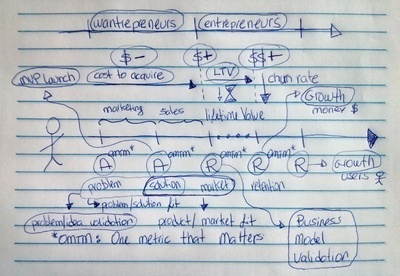 wantrepreneurs entrepreneurs
$- $+ $$+
MVP launch cost to acquire LTV churn rate
Growth
money $
marketing sales lifetime value
omtm* omtm* omtm* omtm*
A A R R R Growth
users
problem solution market retention
problem/solution fit
problem/idea validation product/market fit
Business
Model
Validation
*omtm: One metric that matters